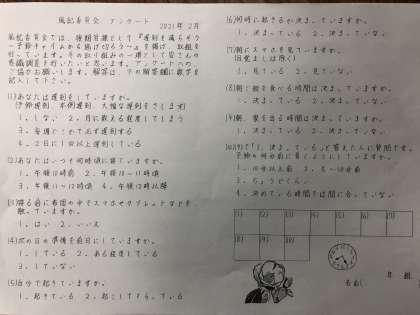 風紀委員会 アンケート
2021年 2月
風紀委員会では、後期目標として『遅刻を減らそう
～予鈴チャイムから抜け切ろう～』を掲げ、取組を
行っています。その取り組みの一環として皆さんの
意識調査を行いたいと思います。アンケートへの
ご協力お願いします。解答は、下の解答欄に数字を
記入して下さい。
(1)あなたは遅刻をしていますか。
(予鈴遅刻、本鈴遅刻、大幅な遅刻をさします)
1、しない 2、月に数える程度してしまう
3、毎週かかさず必ず遅刻する
4、2日に1回以上遅刻している
(2)あなたはいつも何時頃に寝ていますか。
1、午後10時前 2、午後10～11時頃
3、午後11～12時頃 4、午後12時以降
(3)寝る前に布団の中でスマホやタブレットなどを
触っていますか。
1、はい 2、いいえ
(4)次の日の準備を前日にしていますか。
1、している 2、ある程度している
3、していない
(5)自分で起きていますか。
1、起きている 2、起こしてもらっている
(6)何時に起きるか決まっていますか。
1、決まっている 2、決まっていない
(7)朝にスマホを見ていますか。
(目覚ましは除く)
1、見ている 2、見ていない
(8)朝ご飯を食べる時間は決まっていますか。
1、決まっている 2、決まっていない
(9)朝、家を出る時間は決まっていますか。
1、決まっている 2、決まっていない
(10)(9)で「1、決まっている」と答えた人に質問です。
1、10分以上前 2、5～10分前
3、ちょうどくらい
4、決めている時間では間に合っていない
(1) (2) (3) (4) (5) (6) (7)
(8) (9) (10)
年 組
名前(